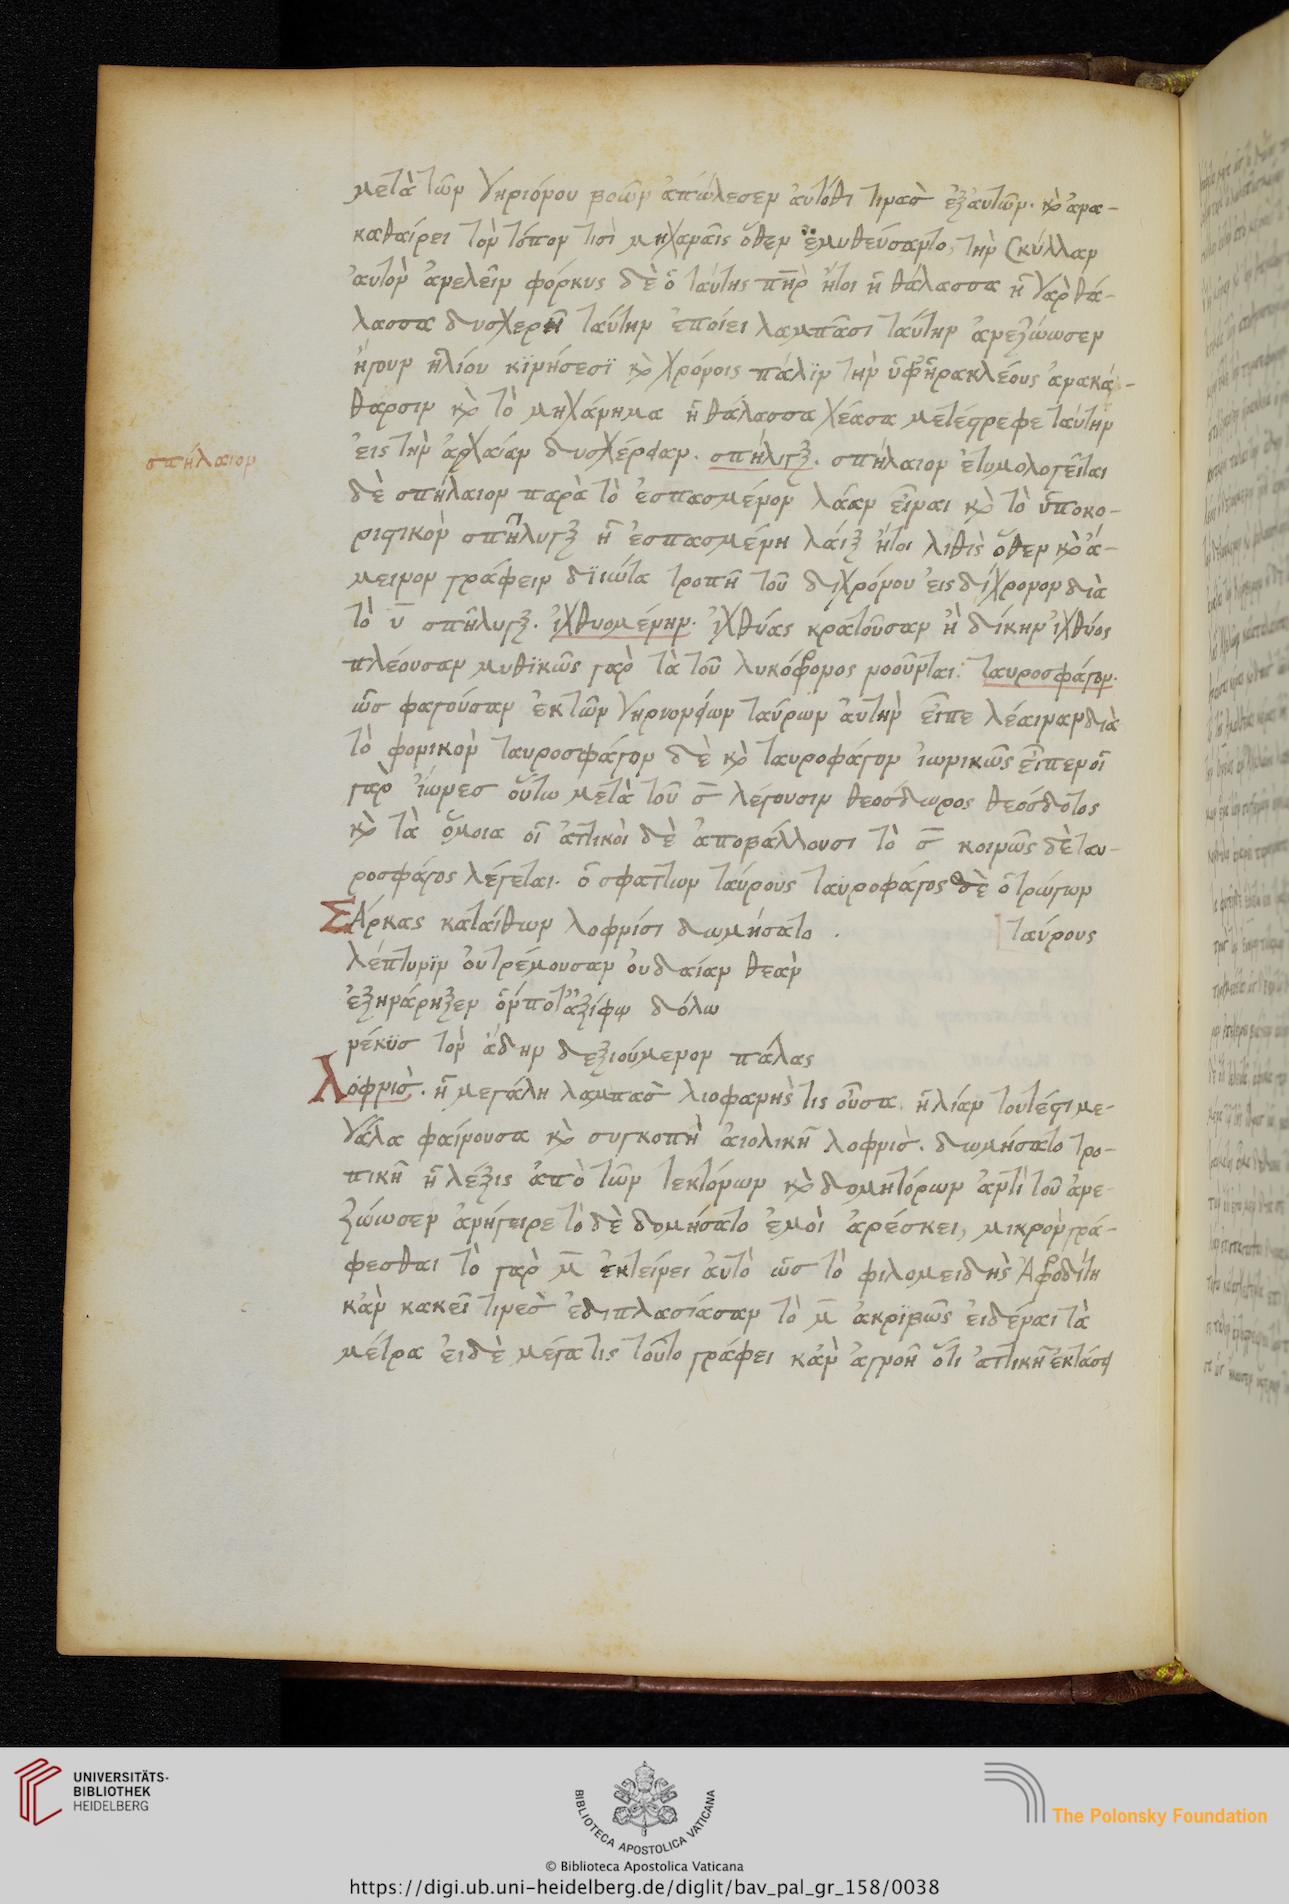 μετὰ τῶν Γηριόνου βοῶν ἀπώλεσεν ἀυτόθι τινασ ἐξ αυτῶν. κ̀ ἀνα-
καθαίρει τὸν τόπον τισὶ μηχαναῖς ὅθεν ἐμυθεύσαντο, τὴν Σκύλλαν
ἀυτὸν ἀνελεῖν φόρκυς δὲ ὁ ταύτης πη̅ρ ἤτοι ἡ θάλασσα ἡ γὰρ θά-
λασσα δυσχερῆ ταύτην ἐποίει λαμπᾶσι ταύτην ἀνεζώωσεν
ἤγουν ἡλίου κϊνήσεσϊ κ̀ χρόνοις πάλϊν τὴν ὑφ' ἡρακλέους ἀνακά-
θαρσιν κ̀ τὸ μηχάνημα ἡ θάλασσα χέασα μετέστρεφε ταύτην
σπήλαιον
ἐις τὴν ἀρχαίαν δυσχέρειαν. σπήλιγξ. σπήλαιον ἐτυμολογεῖται
δὲ σπήλαιον παρὰ τὸ ἐσπασμένον λάαν εἶναι κ̀ τὸ ὑποκο-
ριστικὸν σπῆλυγξ ἡ ἐσπασμένη λάϊξ ἤτοι λιθὶς ὅθεν κ̀ ἄ-
μεινον γράφειν δϊ ιώτα τροπῆ τοῦ διχρόνου ἐις δίχρονον διὰ
τὸ υ̅ σπῆλυγξ. ἰχθυομένην. ἰχθύας κρατοῦσαν ἢ δίκην ἰχθύος
πλέουσαν μυθϊκῶς γὰρ τὰ τοῦ λυκόφρονος νοοῦνται. ταυροσφάγον.
ὡσ φαγούσαν ἐκ τῶν Γηριονείων ταύρων ἀυτὴν εἶπε λέαιναν διὰ
τὸ φονικὸν ταυροσφάγον δὲ κ̀ ταυροφάγον ἰωνικῶς εἶπεν οἱ
γὰρ ἴωνεσ οὕτω μετὰ τοῦ σ̅ λέγουσιν θεοσδωρος θεόσδοτος
κ̀ τὰ ὅμοια οἱ ἀττικοὶ δὲ ἀποβάλλουσι τὸ σ̅ κοινῶς δὲ ταυ-
ροσφάγος λέγεται. ὁ σφαττων ταύρους ταϋροφάγος δὲ ὁ τρώγων
Σάρκας καταίθων λοφνίσι δωμήσατο . ταύρους
λέπτυνϊν ὀυ τρέμουσαν ὀυδαίαν θεαν̀
ἐξηνάριξεν ὅν ποτ' ἀξίφω δόλω
νέκϋσ τὸν ἅδην δεξιούμενον πάλας
Λοφνισ̀. ἡ μεγάλη λαμπασ̀ λιοφανησ̀ τις οὖσα. ἡ λίαν τουτέστι με-
γάλα φαίνουσα κ̀ συγκοπῆ ἀιολικῆ λοφνισ̀. δωμήσατο τρο-
πικὴ ἡ λέξις ἀπὸ τῶν τεκτόνων κ̀ δομητόρων ἀντὶ τοῦ ἀνε-
ζώωσεν ἀνήγειρε τὸ δὲ δομήσατο ἐμοὶ ἀρέσκει, μικρὸν γρά-
φεσθαι τὸ γαρ̀ μ̅ ἐκτείνει ἀυτὸ ὡσ τὸ φιλομειδησ̀ Ἀφροδίτη
κἀν κακεῖ τινεσ̀ ἐδιπλασϊάσαν τὸ μ̅ ἀκρϊβῶς ἐιδέναι τὰ
μέτρα ἐι δὲ μέγα τις τοῦτο γράφει κἀν ἀγνοῆ ὅτι ἀττικῆ ἐκτάσει
UNIVERSITÄTS-
BIBLIOTHEK
HEIDELBERG
BIBLIOTECA APOSTOLICA VATICANA
The Polonsky Foundation
© Biblioteca Apostolica Vaticana
https://digi.ub.uni-heidelberg.de/diglit/bav_pal_gr_158/0038